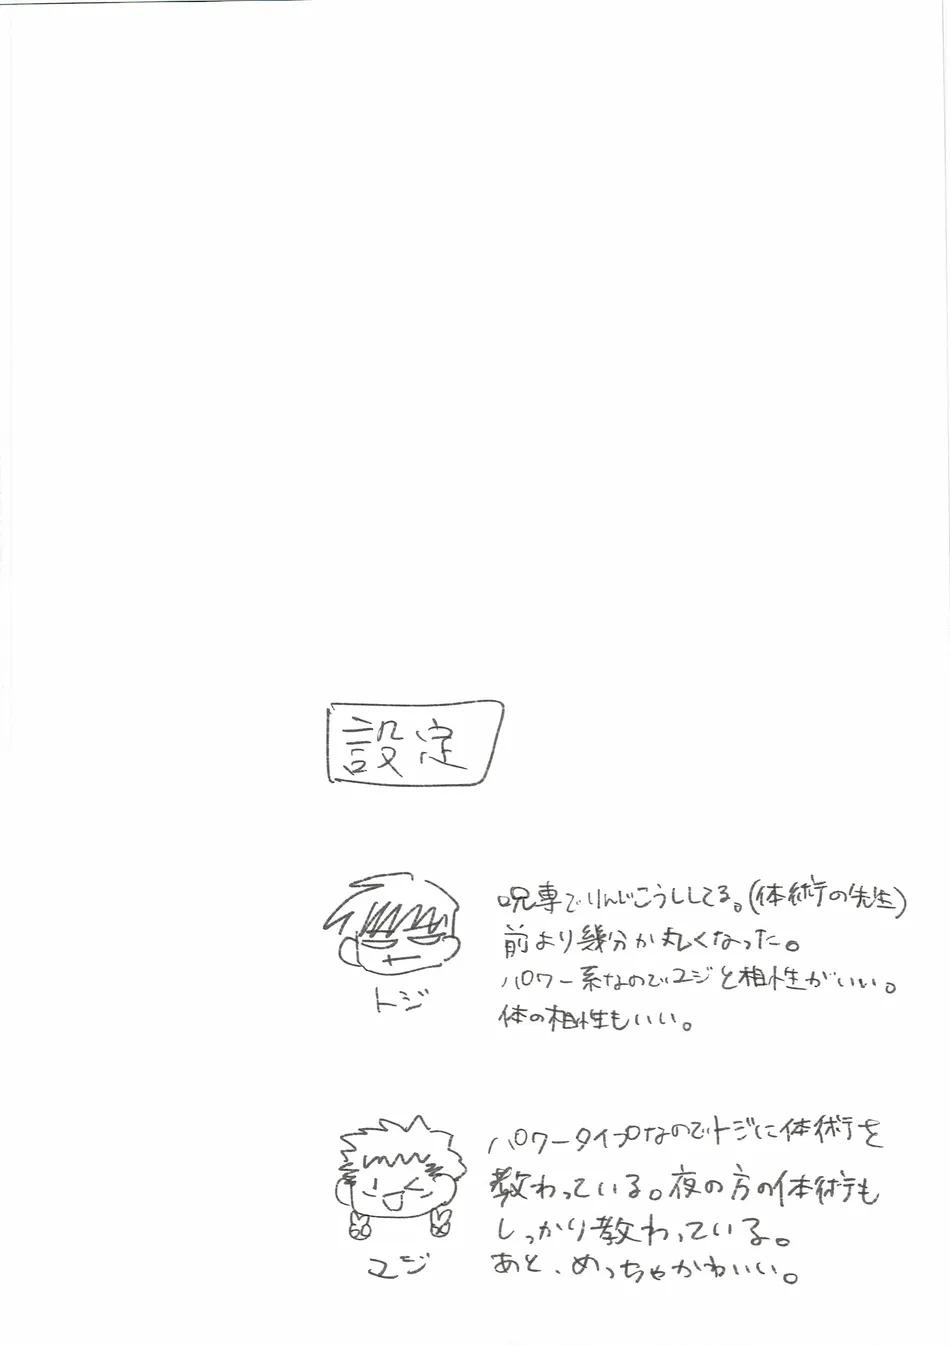 設定
呪専でりんじこうししてる。(体術の先生)
前より幾分か丸くなった。
パワー系なのでユジと相性がいい。
体の相性もいい。
トジ
パワータイプなのでトジに体術を
教わっている。夜の方の体術も
しっかり教わっている。
あと、めっちゃかわいい。
ユジ